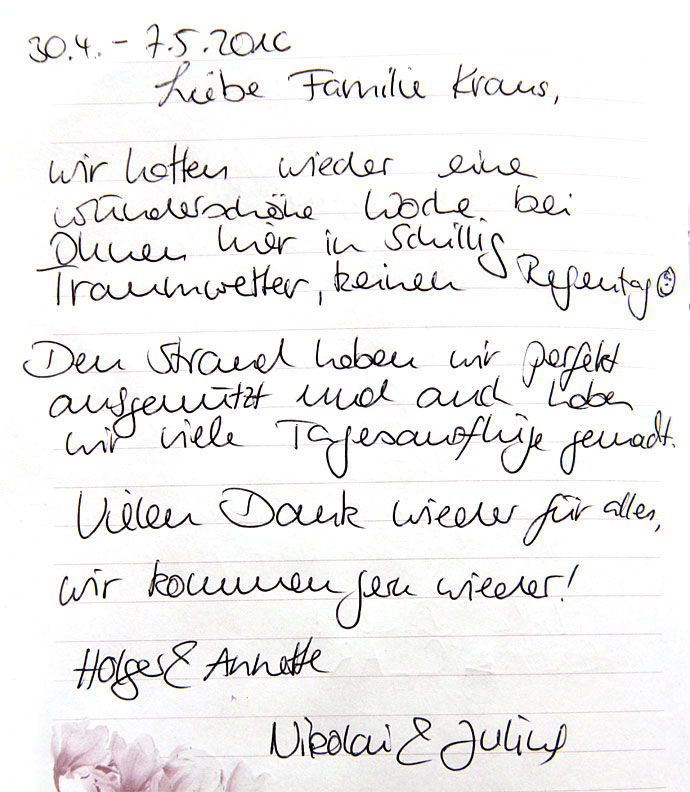 30.4. - 7.5.2016
Liebe Familie Kraus,
wir hatten wieder eine
wunderschöne Woche bei
Ihnen hier in Schillig
Traumwetter, keinen Regentag ☺
Den Strand haben wir perfekt
ausgenützt und auch haben
wir viele Tagesausflüge gemacht.
Vielen Dank wieder für alles,
wir kommen gern wieder!
Holger & Annette
Nikolai & Julius